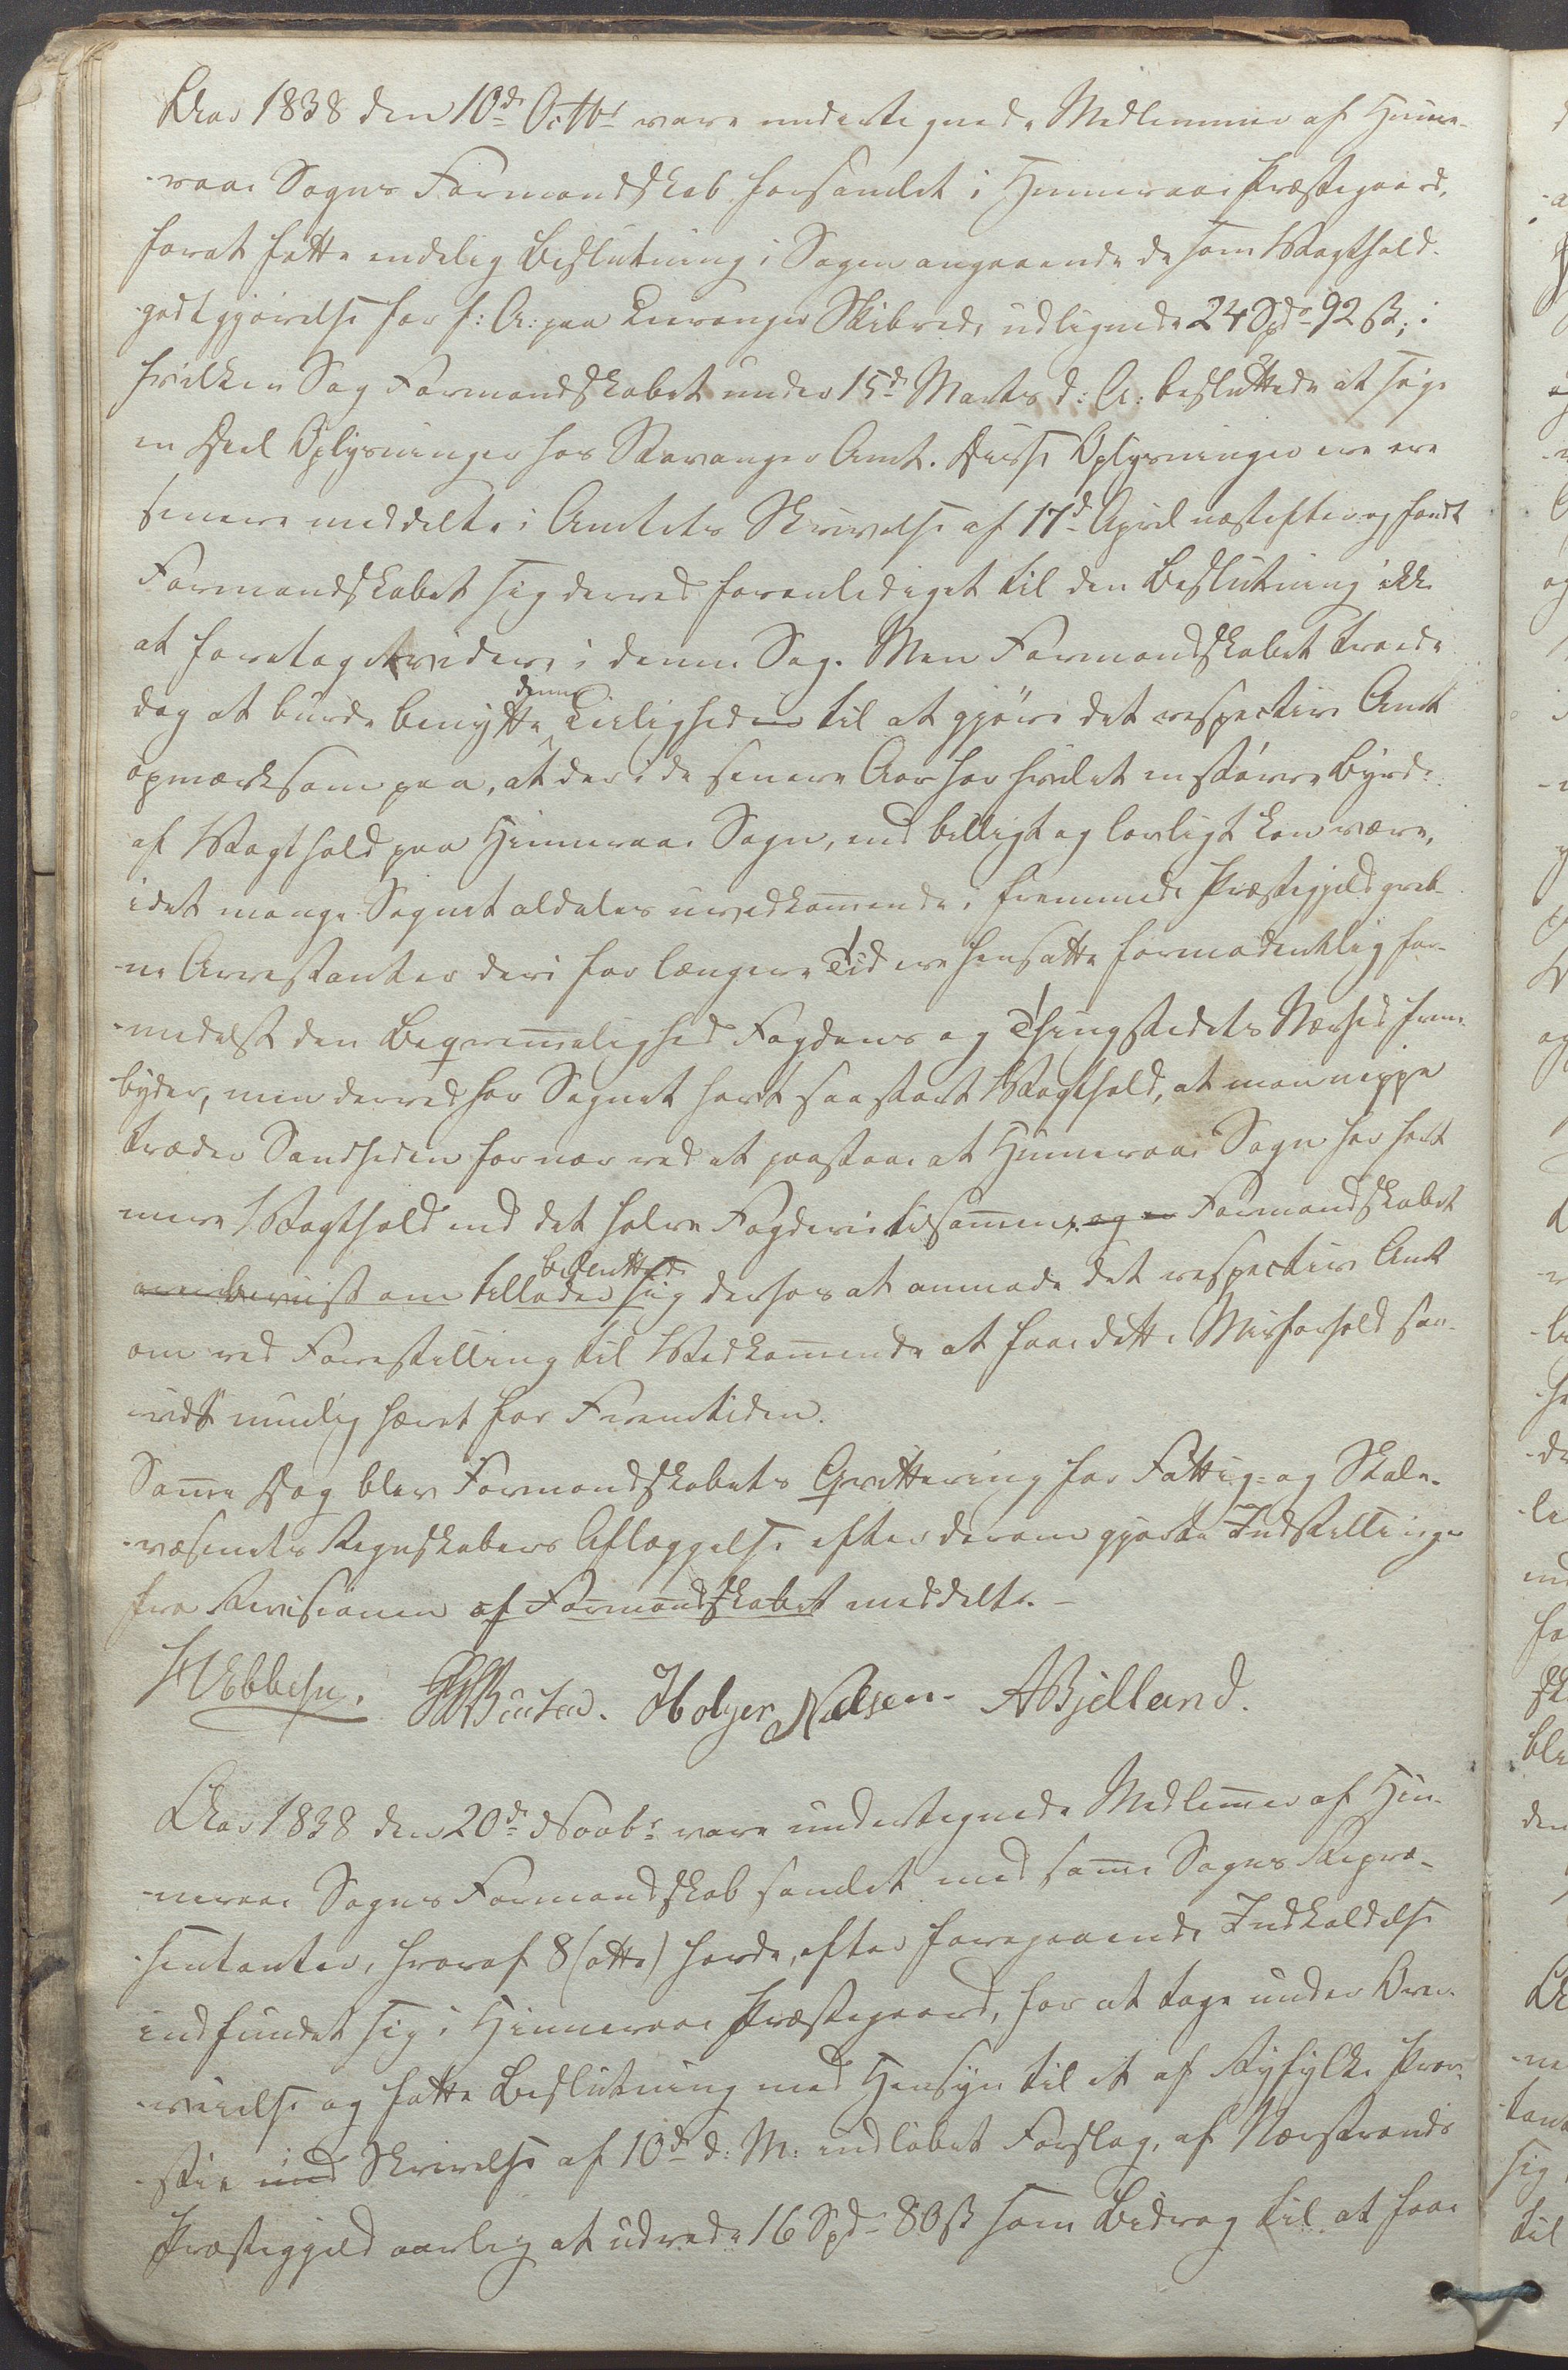 Aar 1838 den 10de Octbr vare undertegnede Medlemmer af Hinne-
-raae Sogns Formandskab forsamlet i Hinneraae Præstegaard,
forat fatte endelig Beslutning i Sagen angaaende de som Vagthold-
godtgjørelse for f: A: paa Leeranger Skibrede udlignede 24 Spd 92 ß; i
hvilken Sag Formandskabet under 15de Marts d: A: besluttede at søge
en Deel Oplysninger hos Stavanger Amt. Disse Oplysninger ere ere
senere meddelte i Amtets Skrivelse af 17de April næstefter og fandt
Formandskabet sig derved foranlediget til den Beslutning ikke
at foretage videre i denne Sag. Men Formandskabet troede
dog at burde benytte denne Leilighed til at gjøre det respective Amt
opmærksom paa, at der i de senere Aar har hvilet en større Byrde
af Vagthold paa Hinneraae Sogn, end billigt og lovligt kan være,
idet mange Sognet aldeles uvedkommende i fremmede Præstegjeld greb-
-ne Arrestanter deri for længere Tid ere hensatte formodentlig for-
-medelst den Beqvemmelighed Fogdens og Thingstedets Nærhed frem-
byder, men derved har Sognet havt saa stort Vagthold, at man neppe
træder Sandheden for nær ved at paastaae at Hinneraae Sogn har havt
mere Vagthold end det halve Fogderie tilsammen, og er Formandskabet
overbeviist om tillader besluttede sig derfor at anmode det respective Amt
om ved Forestilling til Vedkommende at faae dette Misforhold saa-
vidt muelig hævet for Fremtiden.
Samme Dag blev Formandskabets Qvittering for Fattig- og Skole-
-væsenets Regnskabers Aflæggelse efter derom gjorte Indstillinger
fra Revisionen af Formandskabet meddelte.-
Ebbesen. Holger Nielsen. ABjelland.
Aar 1838 den 20de Novbr vare undertegnede Medlemmer af Hin-
-neraae Sogns Formandskab samlet med samme Sogns Repræ-
-sentanter, hvoraf 8 (otte) havde, efter foregaaende Indkaldelse
indfundet sig i Hinneraae Præstegaard, for at tage under Over-
-veielse og fatte Beslutning med Hensyn til et af Ryfylke Prov-
-stie ind Skrivelse af 10de d: M: indløbet Forslag, af Nærstrands
Præstegjeld aarlig at udrede 16 Spd 80 ß som Bidrag til at faae